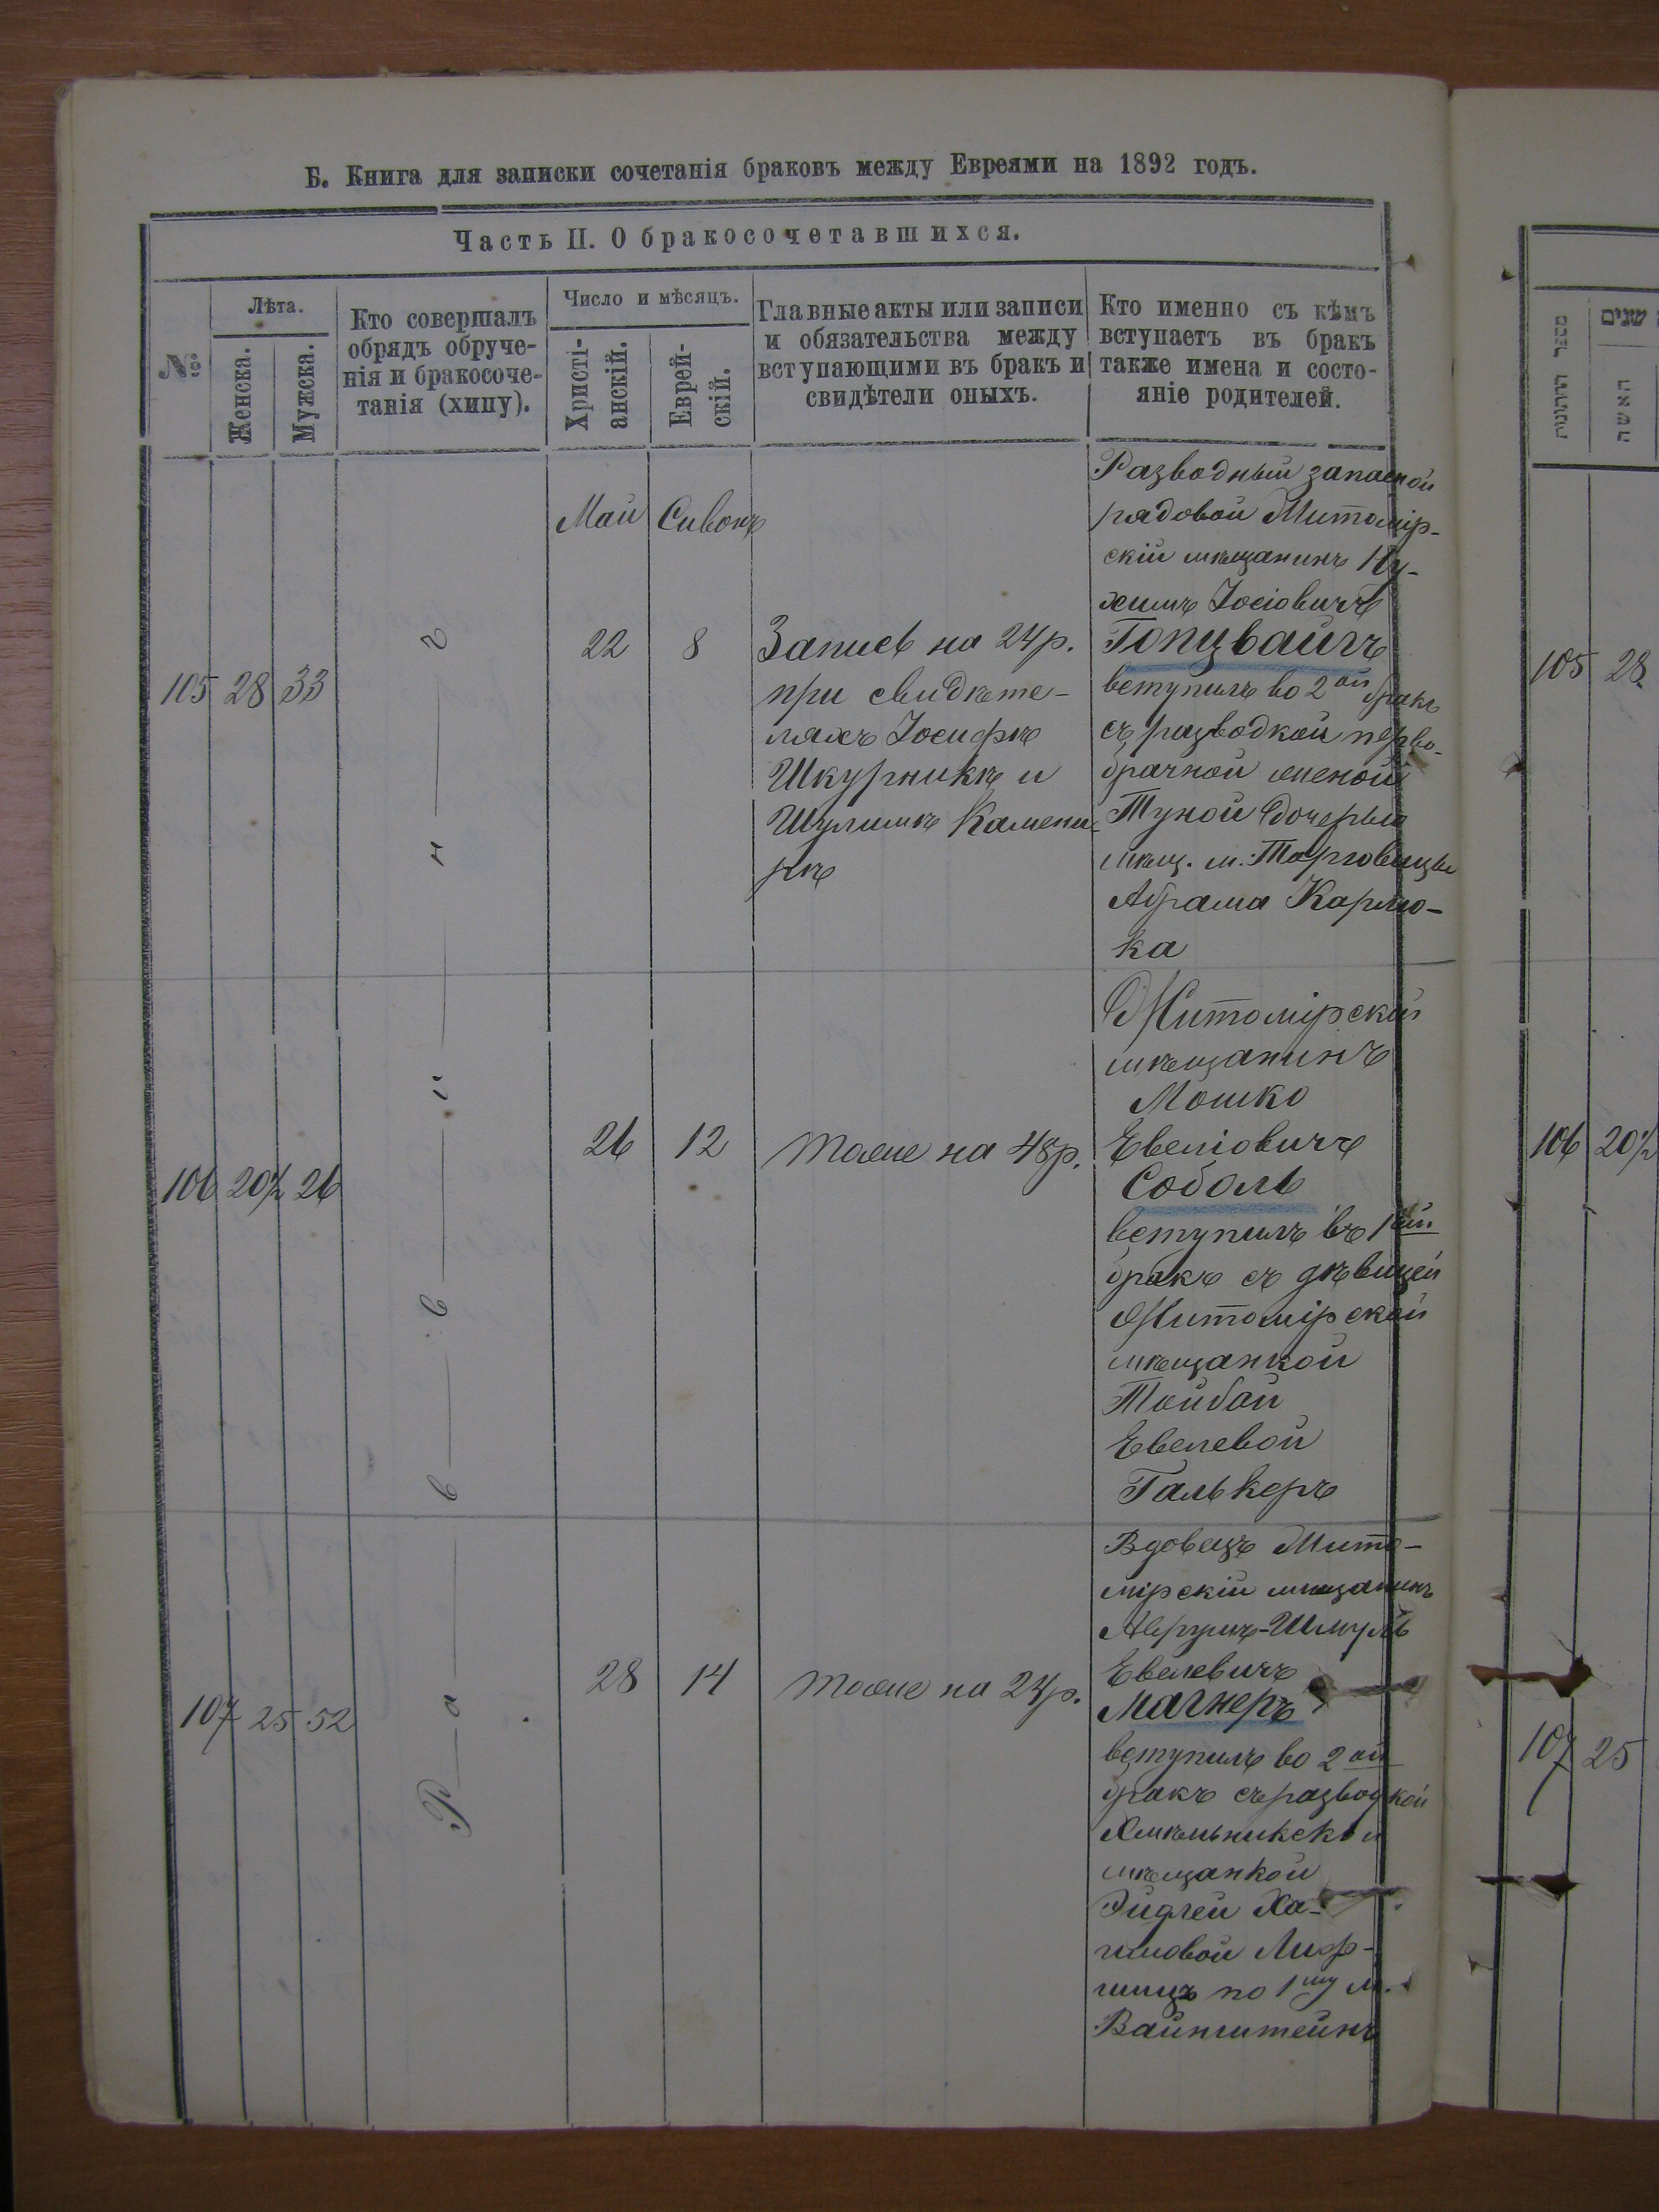 Б. Книга для записки сочетанія браковъ между Евреями на 1892 годъ.
Часть II. О бракосочетавшихся.
№
Лѣта.
Женска.
Мужска.
Кто совершалъ
обрядъ обруче-
нія и бракосоче-
танія (хипу).
Число и мѣсяцъ.
Христі-
анскій.
Еврей-
скій.
Главные акты или записи
и обязательства между
вступающими въ бракъ и
свидѣтели оныхъ.
Кто именно съ кѣмъ
вступаетъ въ бракъ
также имена и состо-
яніе родителей.
Май
Сивонъ
105
28
33
22
8
Запись на 24 р.
при свидѣте-
ляхъ Іосифѣ
Шкурникѣ и
Шулимѣ Камени-
рѣ
Разводный запасной
рядовой Житомір-
скій мѣщанинъ Ну-
химъ Іосіовичъ
вступилъ во 2ой бракъ
съ разводкой перво-
брачной женой
Туной дочерью
мѣщ. м. Торговицы
Абрама Карлю-
ка
106
20½
26
26
12
тоже на 48 р.
Житомірскій
мѣщанинъ
Мошко
Евеліовичъ
Соболь
вступилъ въ 1ый
бракъ съ дѣвицей
Житомірской
мѣщанкой
Тойбой
Евелевой
Галькеръ
107
25
52
28
14
тоже на 24 р.
Вдовецъ Жито-
мірскій мѣщанинъ
Аврумъ-Шмуль
Евелевичъ
Магнеръ
вступилъ во 2ой
бракъ съ разводкой
Хмѣльникской
мѣщанкой
Эйдлей Ха-
имовой Лиф-
шицъ по 1му м.
Вайнштейнъ
Раввинъ
מספר החתונות
שנים
האשה
105
28
106
20½
107
25